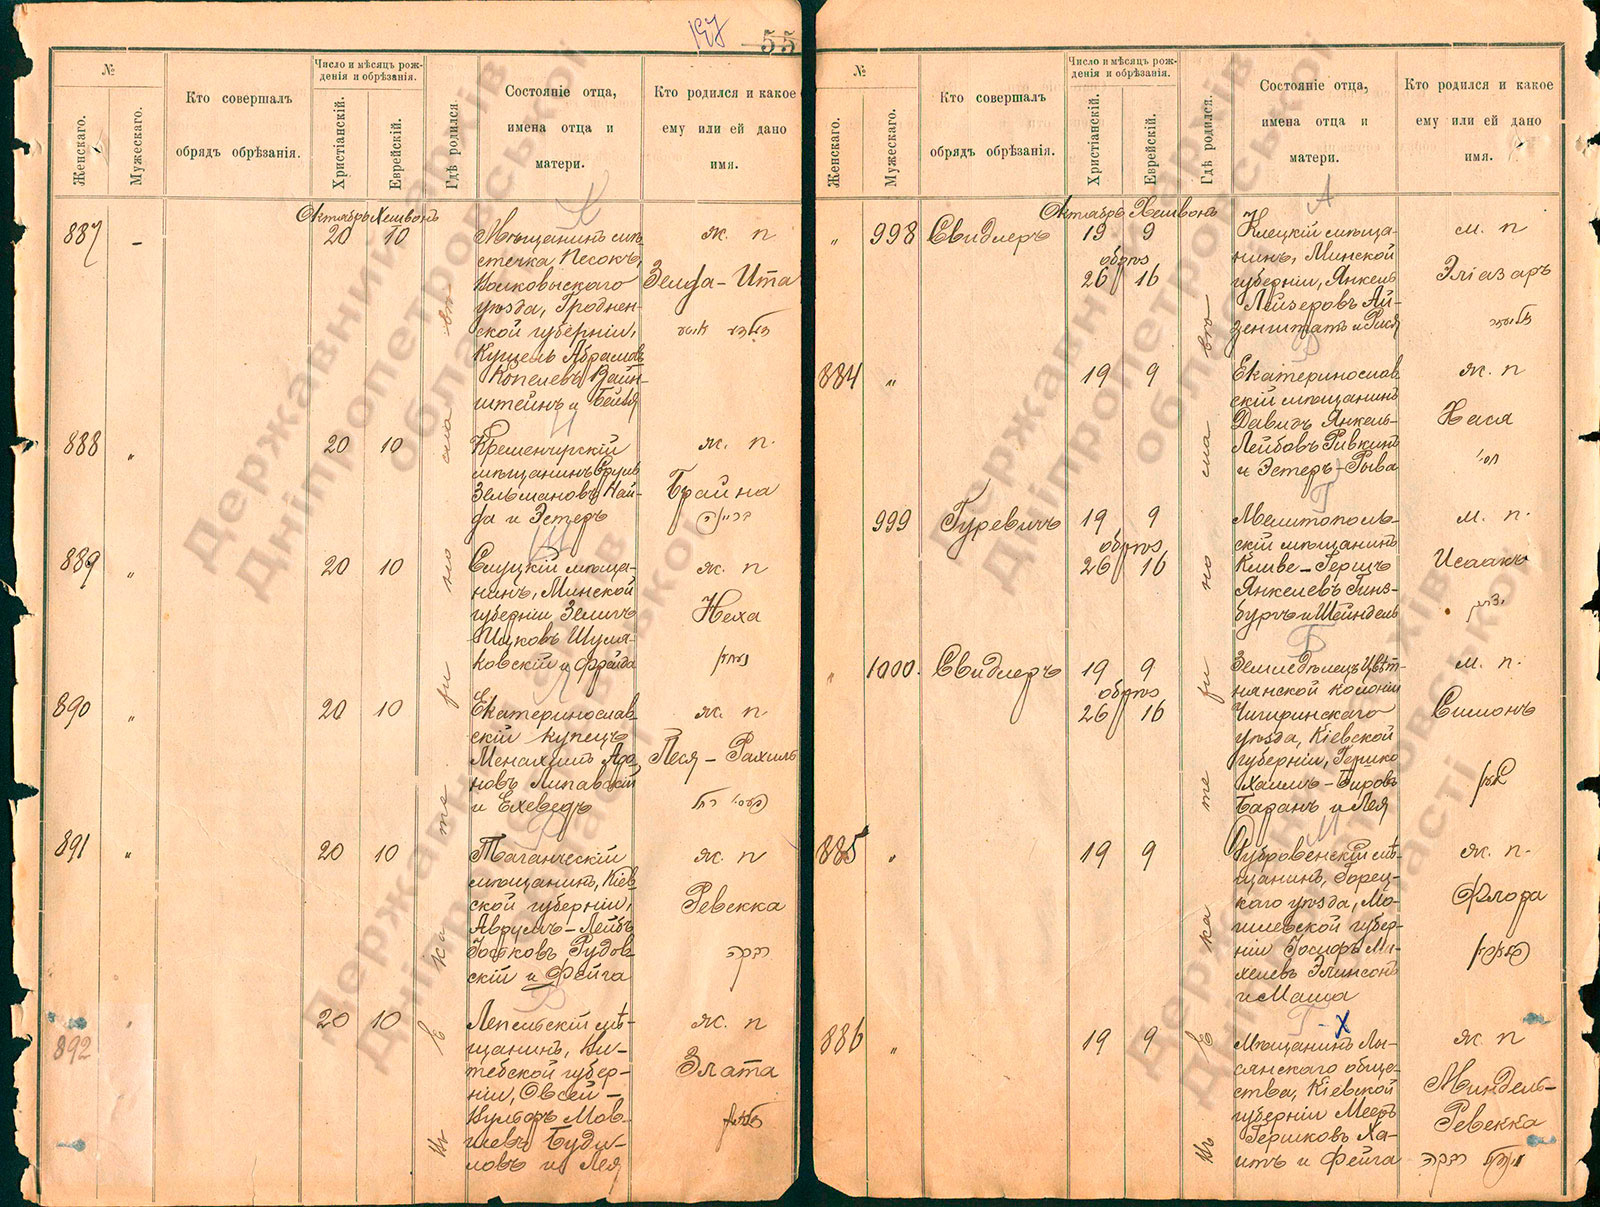 157 55
№
Женскаго.
Мужескаго.
Кто совершалъ
обрядъ обрѣзанія.
Число и мѣсяцъ рож-
денія и обрѣзанія.
Христіанскій.
Еврейскій.
Гдѣ родился
Состояніе отца,
имена отца и
матери.
Кто родился и какое
ему или ей дано
имя.
Октябрь Хешвонъ
887 - 20 10
Мѣщанинъ мѣ-
стечка Песокъ,
Волковыскаго
уѣзда, Гроднен-
ской губерніи,
Абрамовъ
Копелевъ Вайн-
штейнъ и Бейля
ж. п
Зелфа - Ита
888 " 20 10
Кременчугскій
мѣщанинъ Сруль
Зельмановъ Най-
да и Эстеръ
ж. п.
Брайна
889 " 20 10
Слуцкій мѣща-
нинъ, Минской
губерніи Зеликъ
Ицковъ Шуля-
ковскій и Фрейда
ж. п
Неха
890 " 20 10
Екатеринослав-
скій купецъ
Менахимъ Аро-
новъ Липавскій
и Ехеведъ
ж. п
Песя - Рахиль
891 " 20 10
Таганческій
мѣщанинъ, Кіев-
ской губерніи,
Аврумъ - Лейбъ
Рудов-
скій и Фейга
ж. п
Ревекка
רבקה
892 " 20 10
Лепельскій мѣ-
щанинъ, Ви-
тебской губер-
ніи, Овсей -
Вульфъ Мов-
шевъ Буди-
ловъ и Лея
ж. п
Злата
въ Екатери но сла вѣ
№
Женскаго.
Мужескаго.
Кто совершалъ
обрядъ обрѣзанія.
Число и мѣсяцъ рож-
денія и обрѣзанія.
Христіанскій.
Еврейскій.
Гдѣ родился.
Состояніе отца,
имена отца и
матери.
Кто родился и какое
ему или ей дано
имя.
Октябрь Хешвонъ
" 998 Свидлеръ 19 9
обрѣз
26 16
Клецкій мѣща-
нинъ, Минской
губерніи, Янкель
Лейзеровъ Ай-
зенштатъ и Рися
м. п
Эліазаръ
884 " 19 9
Екатеринослав-
скій мѣщанинъ
Давидъ Янкель-
Лейбовъ Ривкинъ
и Эстеръ - Рыва
ж. п
Хася
חסי'
999 Гуревичъ 19 9
обрѣз
26 16
Мелитополь-
скій мѣщанинъ
Кливе - Гершъ
Янкелевъ Гинз-
бургъ и Шейндель
м. п.
Исаакъ
יצחק
" 1000. Свидлеръ 19 9
обрѣз
26 16
Земледѣлецъ Цвѣт-
нянской колоніи
Чигиринскаго
уѣзда, Кіевской
губерніи, Гершко
Хаимъ - Бировъ
Баранъ и Лея
м. п.
Симонъ
885 " 19 9
Дубровенскій мѣ-
щанинъ, Горец-
каго уѣзда, Мо-
гилевской губер-
ніи Іосифъ Ми-
хелевъ Элинсонъ
и Маша
ж. п.
Флора
886 " 19 9
Мѣщанинъ Лы-
сянскаго обще-
ства, Кіевской
губерніи Мееръ
Гершковъ Ха-
итъ и Фейга
ж. п
Миндель-
Ревекка
מינדל רבקה
въ Екатери но сла вѣ
Державний архів
Дніпропетровської
області